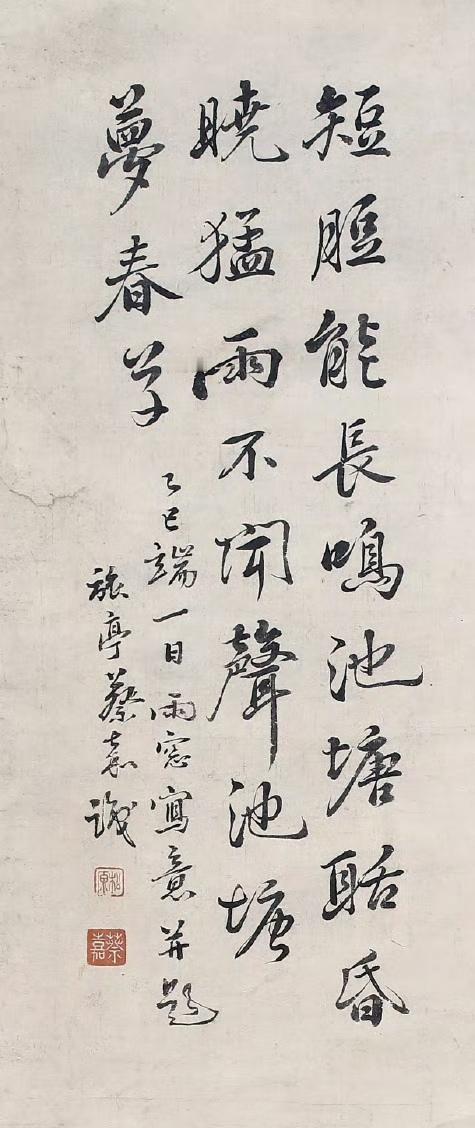 短脰能長鳴池塘聒昏
曉猛雨不聞聲池塘
夢春草
乙巳端一日雨窓寫意并題
旅亭蔡嘉識
松原
蔡嘉